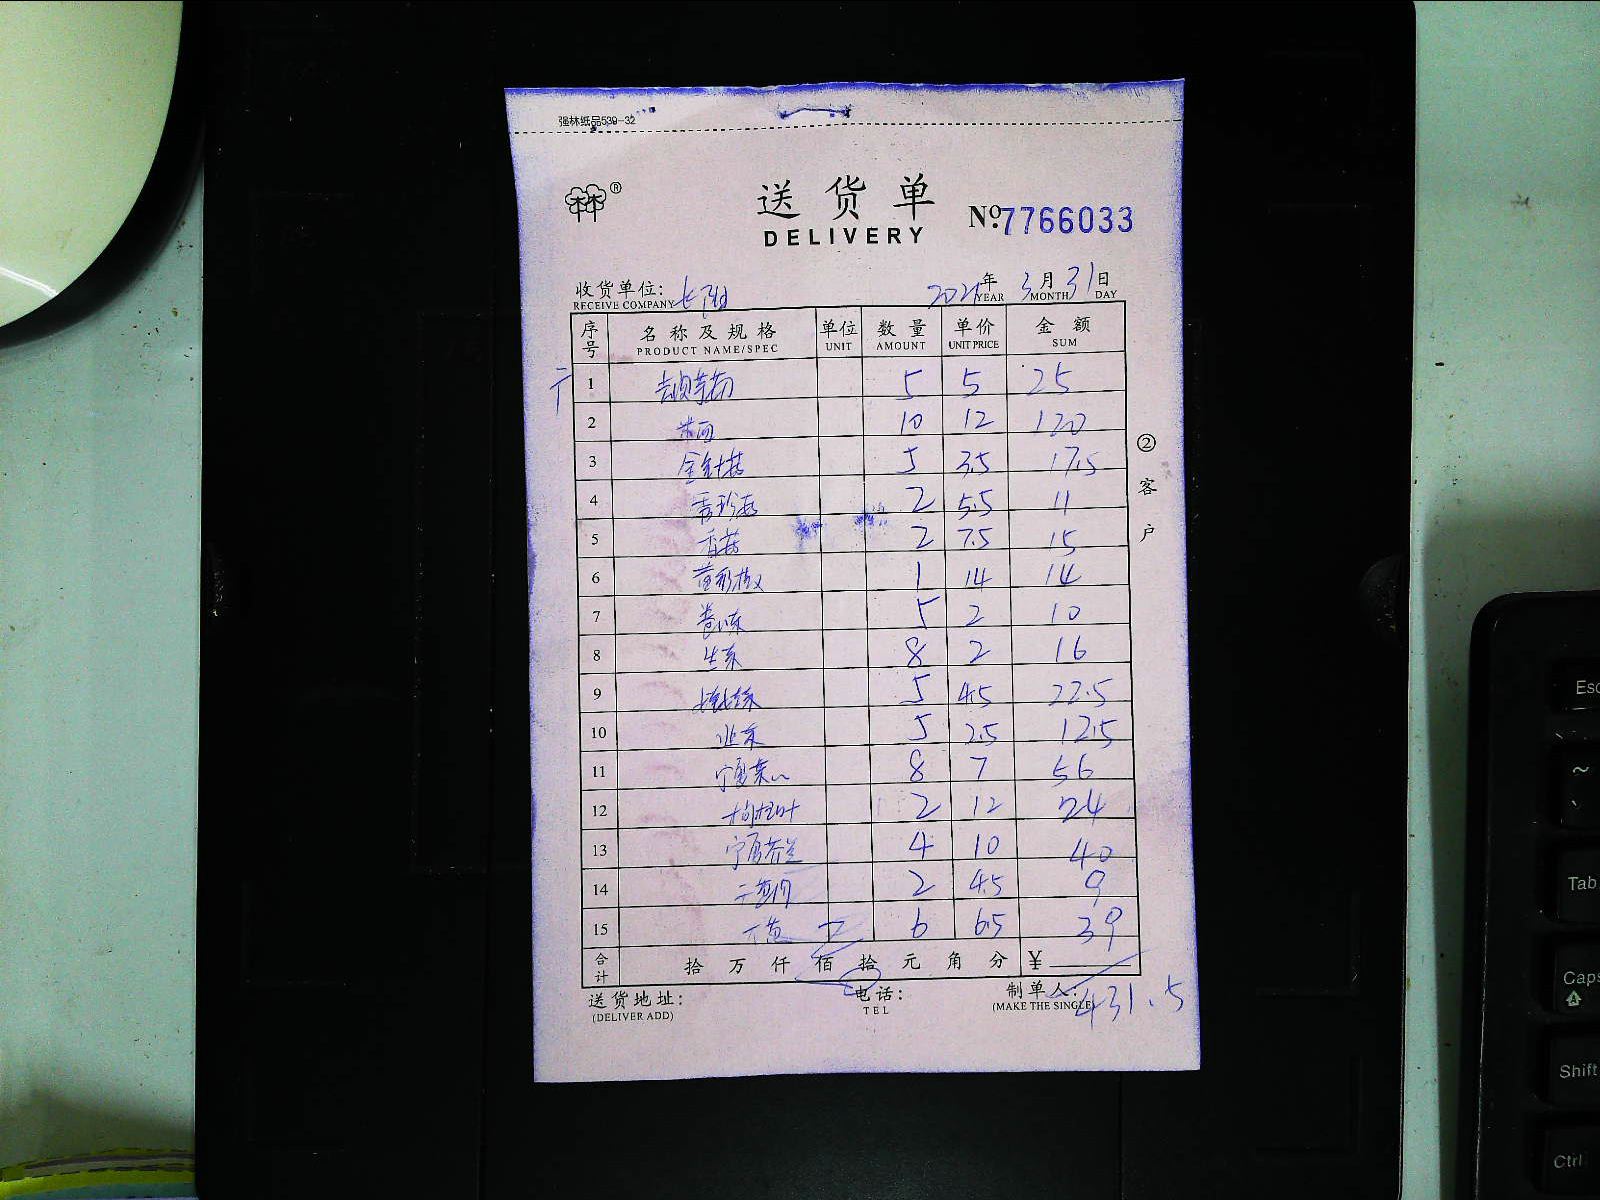 强林纸品539-32
林林®
送货单
DELIVERY
№.7766033
收货单位：长阳 2021年3月31日
RECEIVE COMPANY YEAR MONTH DAY
序号 名称及规格 单位 数量 单价 金额
PRODUCT NAME/SPEC UNIT AMOUNT UNIT PRICE SUM
1 5 5 25
2 10 12 120
3 金针菇 5 3.5 17.5
4 秀珍菇 2 5.5 11
5 香菇 2 7.5 15
6 黄彩椒 1 14 14
7 5 2 10
8 生菜 8 2 16
9 5 4.5 22.5
10 5 2.5 12.5
11 宁夏菜心 8 7 56
12 2 12 24
13 宁夏芥兰 4 10 40
14 2 4.5 9
15 6 6.5 39
合计 拾万仟佰拾元角分 ¥
431.5
送货地址： 电话： 制单人：
(DELIVER ADD) TEL (MAKE THE SINGLE)
②客户
Esc
~
Tab
Caps
A
Shift
Ctrl